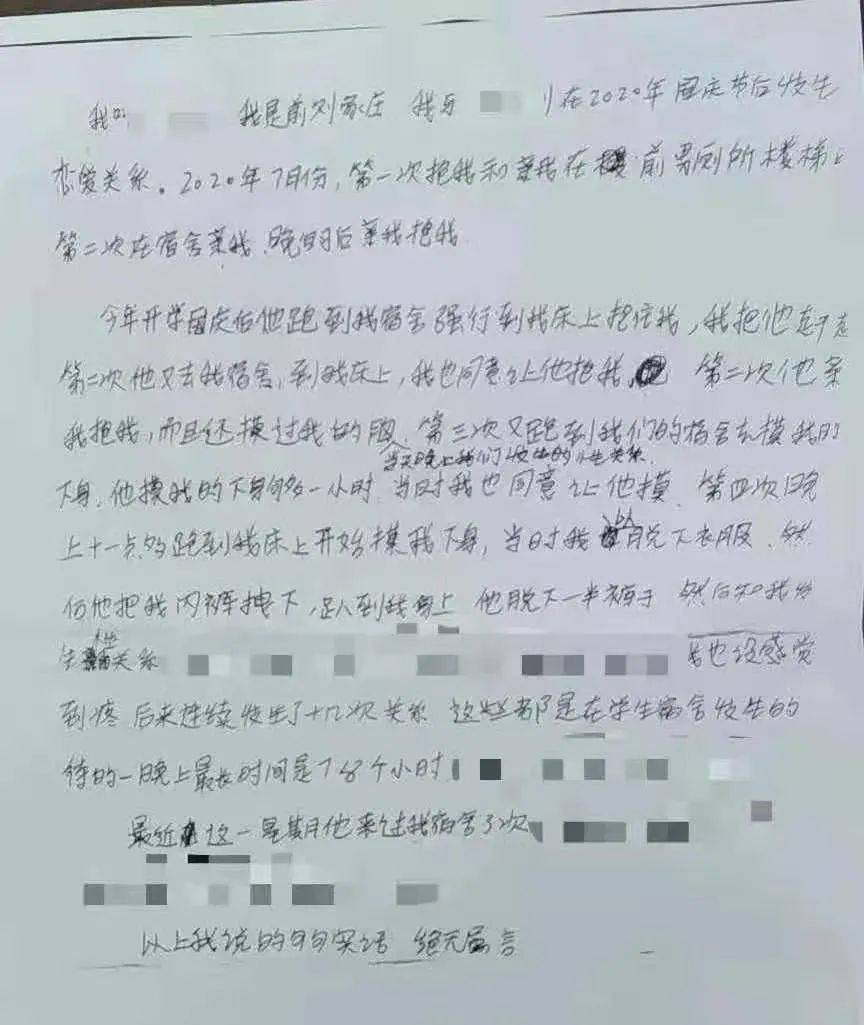 我叫 我是前刘家庄 我与 在2020年国庆节后发生
恋爱关系。2020年7月份，第一次抱我和亲我在 前男厕所楼梯上
第二次在宿舍亲我.晚自后亲我抱我
今年开学国庆后他跑到我宿舍强行到我床上抱住我，我把他赶走
第二次他又去我宿舍，到我床上，我也同意让他抱我， 第二次他亲
我抱我，而且还摸过我的胸、第三次又跑到我们的宿舍去摸我的
当天晚上我们发生的性关系.
下身，他摸我的下身够一小时 当时我也同意让他摸. 第四次晚
上十一点多跑到我床上开始摸我下身，当时我 脱下衣服. 然
后他把我内裤拽下，趴到我身上 他脱下一半裤子 然后和我发
生 关系 也没感觉
到疼 后来连续发生了十几次关系 这些都是在学生宿舍发生的
待的一晚上最长时间是7 8个小时
最近 这一星期他来过我宿舍了次
以上我说的句句实话 绝无虚言